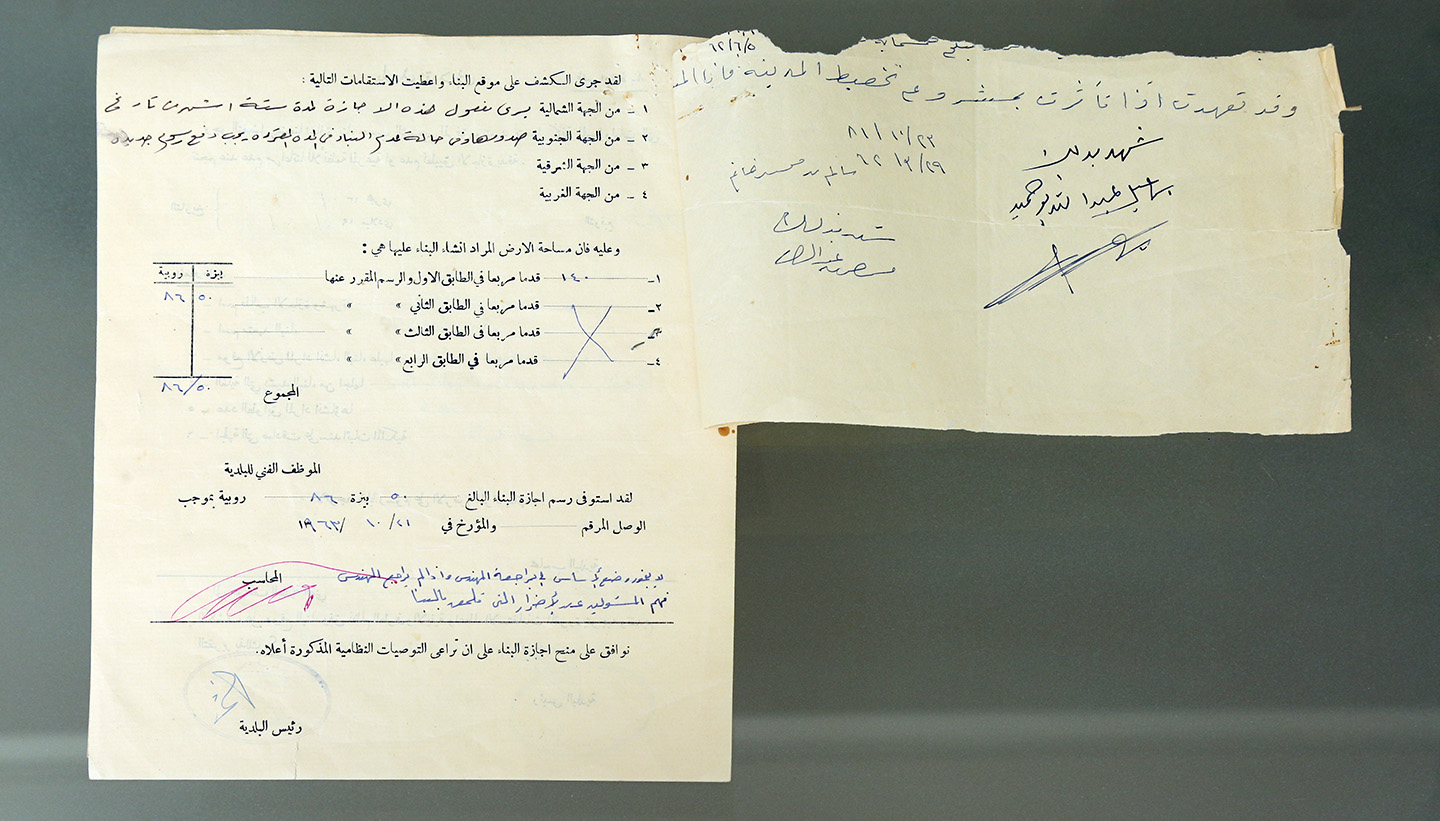 لقد جرى الكشف على موقع البناء واعطيت الاستقامات التالية :
١ ـ من الجهة الشمالية يسرى مفعول هذه الاجازة لمدة ستة اشهر من تاريخ
٢ ـ من الجهة الجنوبية صدورها وفي حالة عدم البناء في المدة المقررة يجب دفع رسوم جديدة
٣ ـ من الجهة الشرقية
٤ ـ من الجهة الغربية
وعليه فان مساحة الارض المراد انشاء البناء عليها هي :
بيزة روبية
١ـ ١٤٠ قدما مربعا في الطابق الاول والرسم المقرر عنها
٥٠ ٨٦
٢ـ قدما مربعا في الطابق الثاني » »
٣ـ قدما مربعا في الطابق الثالث » »
٤ـ قدما مربعا في الطابق الرابع » »
المجموع
٨٦/٥٠
الموظف الفني للبلدية
لقد استوفى رسم اجازة البناء البالغ ٥٠ بيزة ٨٦ روبية بموجب
الوصل المرقم والمؤرخ في ٢١/ ١٠ /١٩٦٣
المحاسب
وضع الاساس مراجعة المهندس واذا لم يراجع المهندس
فهم المسئولين عن الأضرار التي تلحق بالبنا
نوافق على منح اجازة البناء على ان تراعى التوصيات النظامية المذكورة أعلاه.
رئيس البلدية
٦٢/٦/٥
وقد تعهدت اذا تأثرت بمشروع تخطيط المدينة
٨١/١٠/٢٣
٦٢/٣/٢٩
شهد بذلك
شهد بذلك